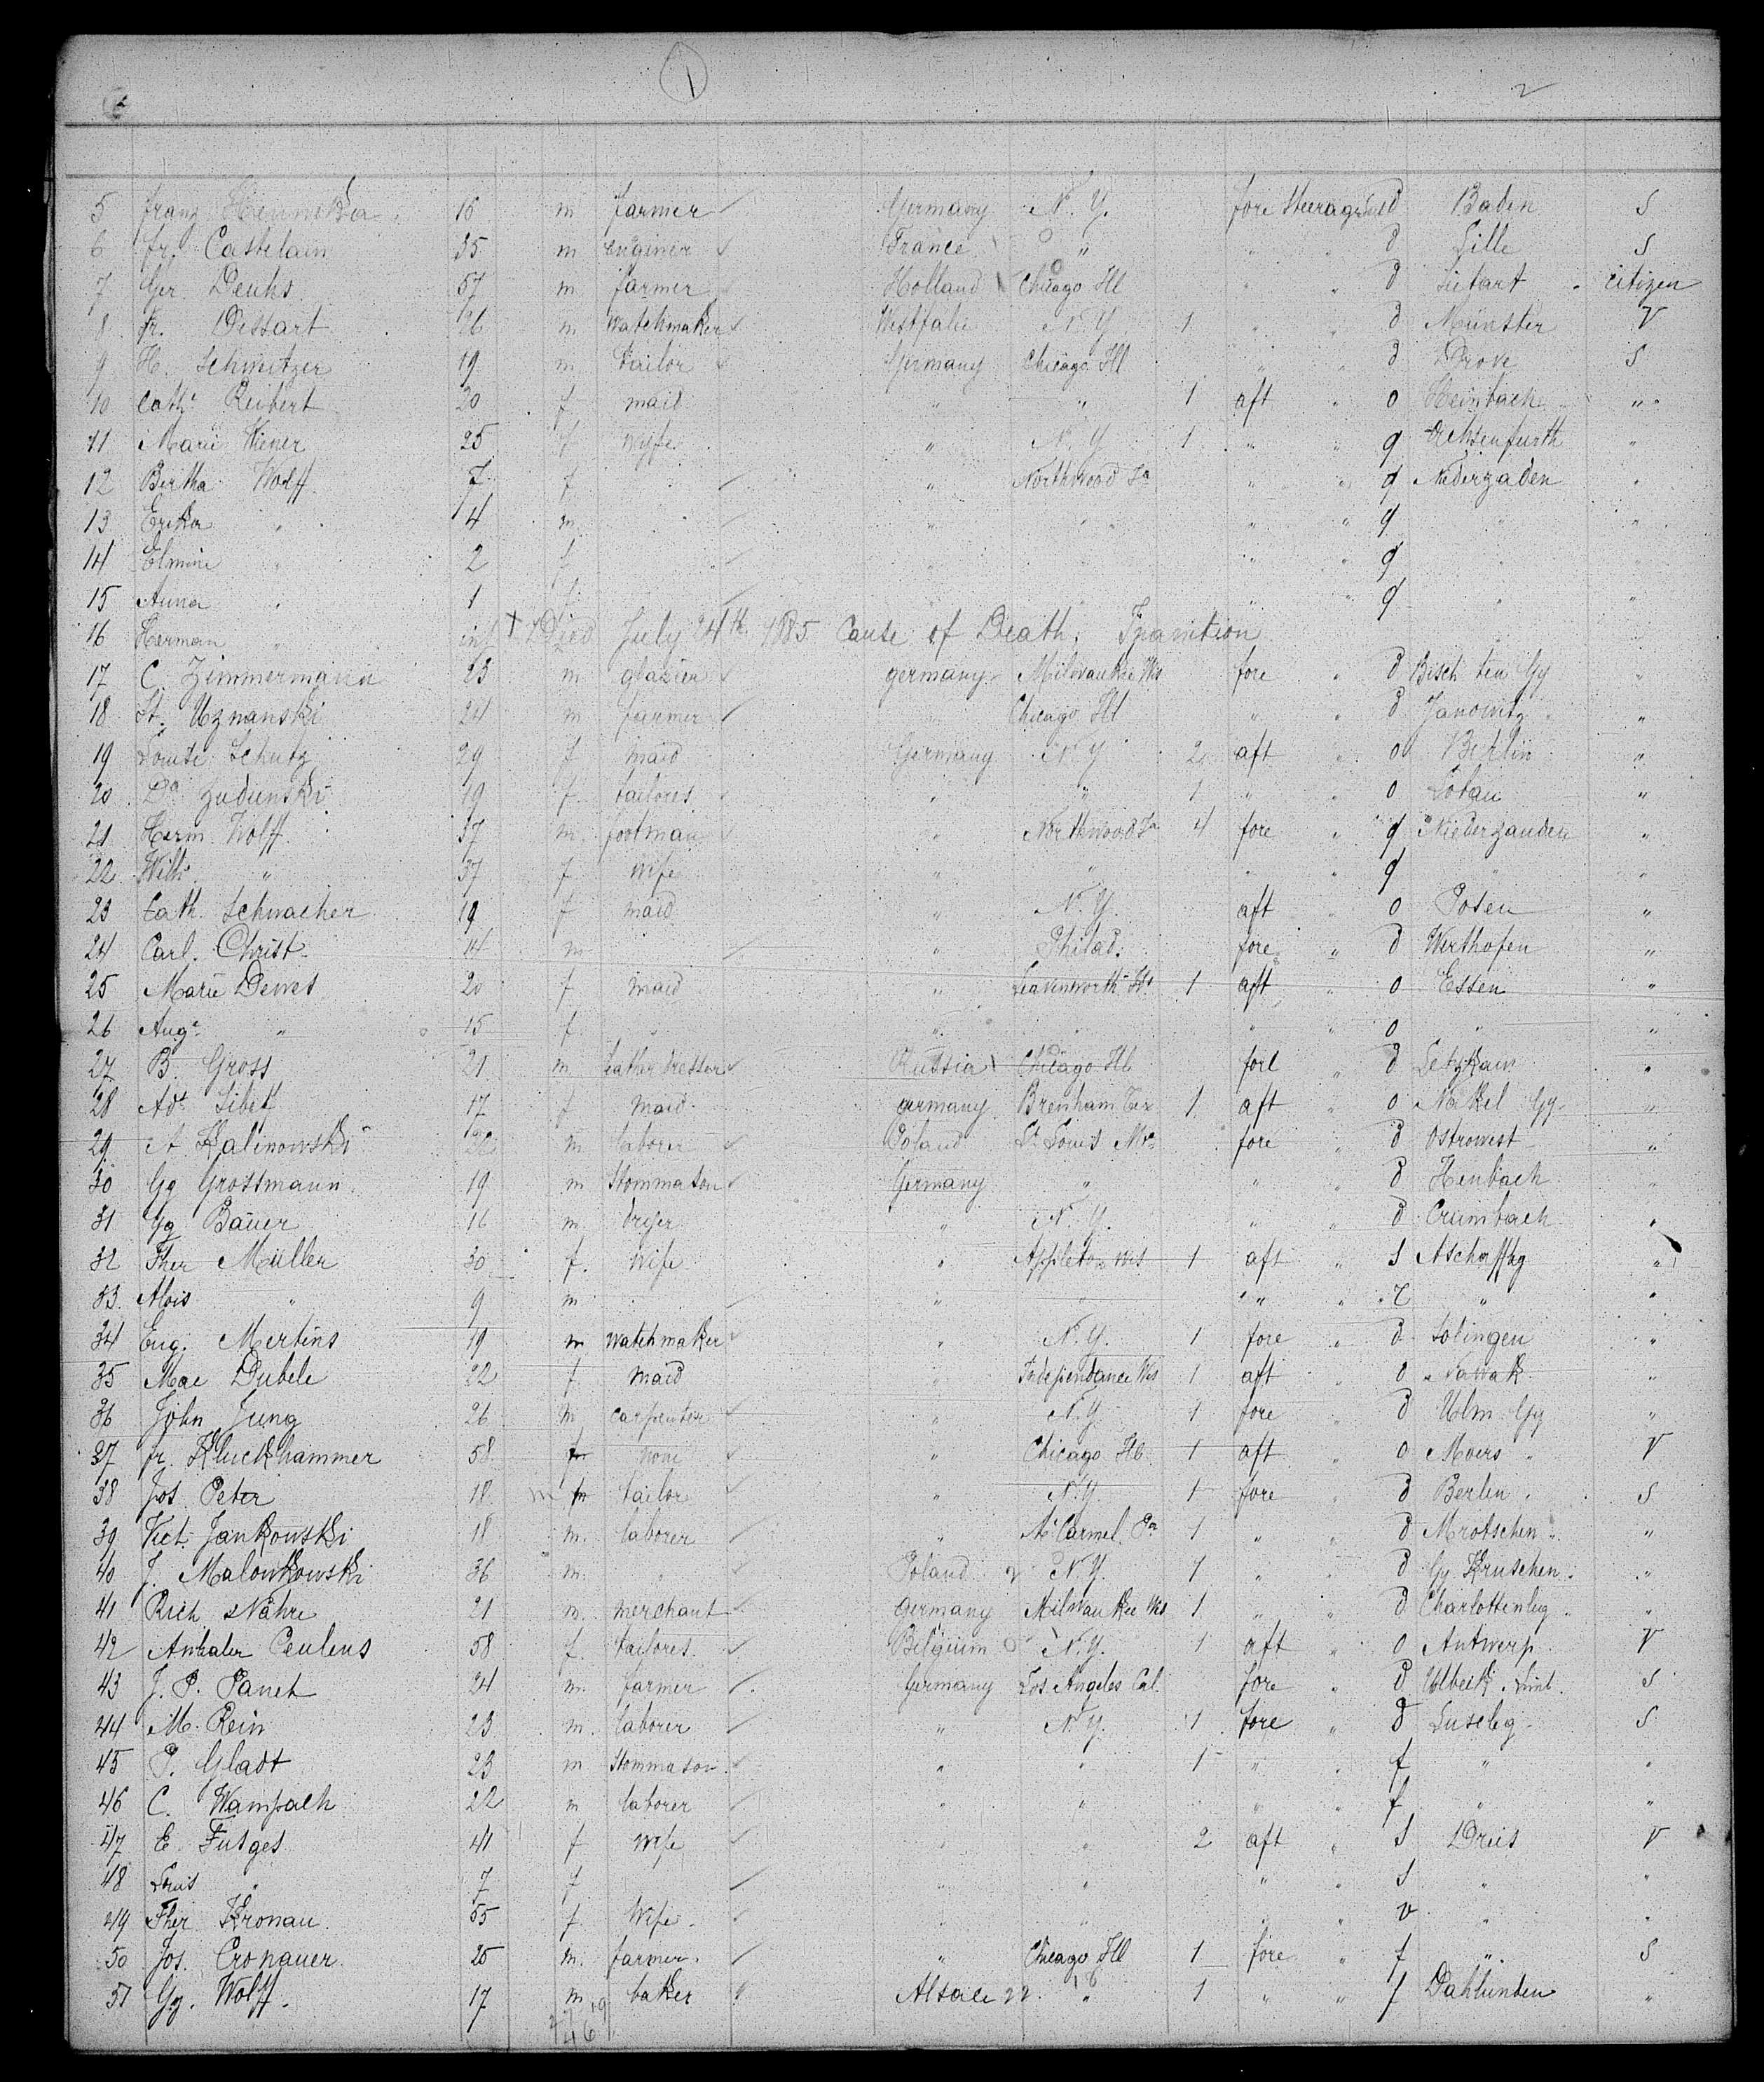 1 2
5 franz 16 m farmer Germany N. Y. fore Steerage d Baden S
6 fr. Castelain 35 m enginer France " " " d Lille S
7 Ger. Deuks 57 m farmer Holland Chicago Ill " " d citizen
8 fr. Dessart 26 m watchmaker Westfalie N. Y 1 " " d Münster V
9 H. Schmitzer 19 m tailor Germany Chicago Ill " " d Drove S
10 Cath. Reibert 20 f maid " " 1 aft " o Heinbach "
11 Marie Wiener 25 f wife " N. Y 1 " " q Ochsenfurth "
12 Bertha Wolff 7 f " Northwood Ia " " q Niderzaden "
13 Erika " 4 m " " " " q " "
14 Elmine " 2 f " " " " q " "
15 Anna " 1 f " " " " q " "
16 Herman " inf + Died July 24th 1885 Cause of Death: " "
17 C. Zimmermann 23 m glazier germany Milwaukee Wis fore " d "
18 St. Uznanski 24 m farmer " Chicago Ill " " d Janowitz "
19 Louise Schutz 29 f maid Germany N. Y 2 aft " o Berlin "
20 19 f tailores " " 1 " " o Lobau "
21 Herm. Wolff 37 m footman " Northwood Ia 4 fore " q Niederzauden "
22 Wilh. " 37 f wife " " " " q " "
23 Cath. Schwacher 19 f maid " N. Y. aft " o Posen "
24 Carl. Christ 14 m " Philad. fore " d Werthofen "
25 Marie Dewes 20 f maid " Leavenworth Ks 1 aft " o Essen "
26 Auge. " 15 f " " " " " o " "
27 B. Gross 21 m leather dresser Russia Chicago Ill fore " d "
28 17 f maid germany Brenham Tex 1 aft " o Nakel Gy. "
29 A Kalinowski 26 m laborer Poland St. Louis Mo fore " d Ostrowest "
30 Gg Grossmann 19 m Stommason Germany " " " d Heubach "
31 Gg Bauer 16 m " N. Y. " " d Crumbach "
32 Ther Müller 30 f. wife " Appleton Wis 1 aft " S Aschaffbg "
33 Alois " 9 m " " " " " "
34 Eug. Mertins 19 m watchmaker " N. Y. 1 fore " d Solingen "
35 Mae Dubele 22 f maid " Independance Wis 1 aft " o "
36 John Jung 26 m carpenter " N. Y 1 fore " d Ulm Gy "
37 fr. Kluckhammer 58 f none " Chicago Ill 1 aft " o Moers " V
38 Jos Peter 18 m tailor " N. Y. 1 fore " d Berlin " S
39 Vict. Jankowski 18 m. laborer " Mt Carmel. Pa 1 " " d Mrotschen " "
40 J. Malonkowski 36 m. " Poland N. Y. 1 " " d Gg Kruschen "
41 Rich Nähre 21 m. merchant germany Milwaukee Wis 1 " " d Charlottenbg "
42 Ceulens 58 f. tailores Belgium N. Y. 1 aft " o Antwerp V
43 J. P. Panet 24 m. farmer Germany Los Angeles Cal. fore " d S
44 M. Rein 23 m. laborer " N. Y. 1 fore " d S
45 P. Gladt 23 m Stommason " " 1 " " f " "
46 C. Wampach 22 m laborer " " " " f " "
47 E. Fusges 41 f wife " " 2 aft " S Dreis V
48 Louis " 7 f " " " " S " "
49 Ther Kronau 55 f. Wife " " " " v " "
50 Jos. Cronauer 25 m. farmer " Chicago Ill 1 fore " f " S
51 Gg. Wolff 17 m baker Alsace " 1 " " f Dahlunden "